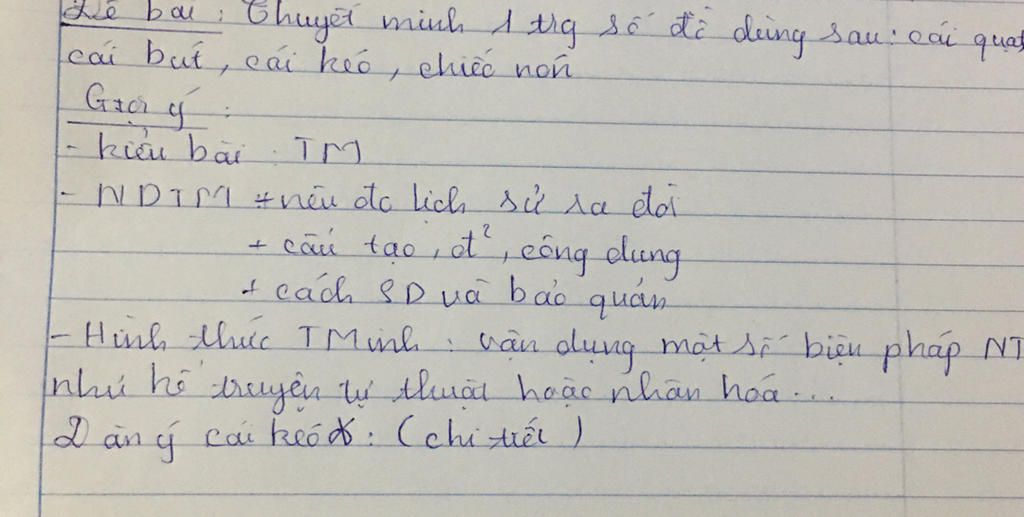 Đề bài : Thuyết minh 1 trg số đồ dùng sau: cái quạt
cái bút, cái kéo, chiếc nón
Gợi ý :
- kiểu bài : TM
- NDTM + nêu đc lịch sử ra đời
+ cấu tạo, đ², công dụng
+ cách SD và bảo quản
- Hình thức TMinh : vận dụng một số biện pháp NT
như kể truyện tự thuật hoặc nhân hoá...
Dàn ý cái kéo : (chi tiết)